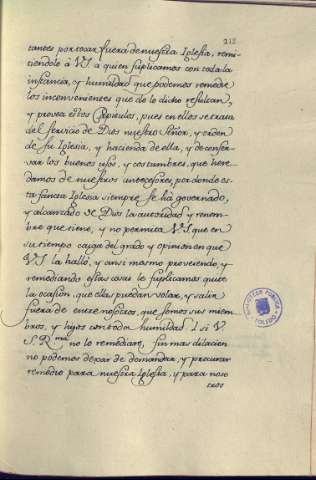 212
tantes por tocar fuera de nuestra Iglesia, remi-
tiendolo à VS à quien suplicamos con toda la
instancia, y humildad que podemos remedie
los inconvenientes que de lo dicho resultan,
y provea estos Capitulos, pues en ellos se trata
del servicio de Dios nuestro Señor, y orden
de su Iglesia, y hacienda de ella, y de conser-
var los buenos usos, y costumbres, que here-
damos de nuestros antecesores, por donde es-
ta sancta Iglesia siempre se hà governado,
y alcanzado de Dios la autoridad y renom-
bre que tiene, y no permita VS que en
su tiempo cayga del grado y opinion en que
VS la hallò, y ansi mesmo proveiendo, y
remediando estas cosas le suplicamos quite
la ocasion, que ellas puedan volar, y salir
fuera de entre nosotros, que somos sus miem-
bros, y hijos con toda humildad I si V
S. Rma no lo remediare, sin mas dilacion
no podemos dexar de demandar, y procurar
remedio para nuestra Iglesia, y para noso
tros
BIBLIOTECA PUBLICA
TOLEDO